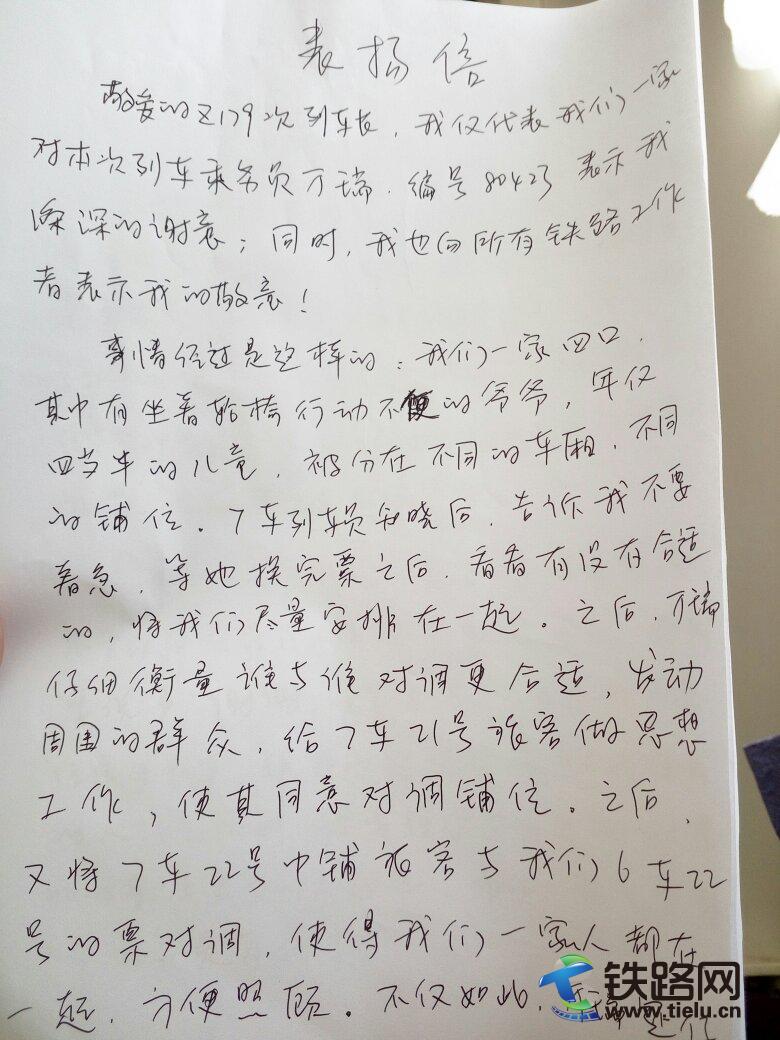 表扬信
敬爱的Z179次列车长，我仅代表我们一家
对本次列车乘务员万瑞．编号80423 表示我
深深的谢意；同时，我也向所有铁路工作
者表示我的敬意！
事情经过是这样的：我们一家四口．
其中有坐着轮椅行动不便的爷爷，年仅
四岁半的儿童，被分在不同的车厢．不同
的铺位。7车列车员知晓后，告诉我不要
着急，等她换完票之后．看看有没有合适
的，将我们尽量安排在一起。之后，万瑞
仔细衡量谁与谁对调更合适，发动
周围的群众，给7车21号旅客做思想
工作，使其同意对调铺位。之后，
又将7车22号中铺旅客与我们6车22
号的票对调，使得我们一家人都在
一起，方便照顾。不仅如此，
铁路网
www.tielu.cn